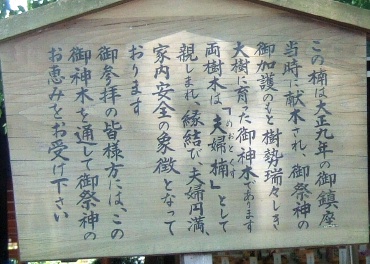 この楠は大正九年の御鎮座
当時に献木され、御祭神の
御加護のもと樹勢瑞々しき
大樹に育った御神木であります
両樹木は、「夫婦楠」として
めおとくす
親しまれ、縁結び、夫婦円満、
家内安全の象徴となって
おります
御参拝の皆様方には、この
御神木を通して御祭神の
お恵みをお受け下さい